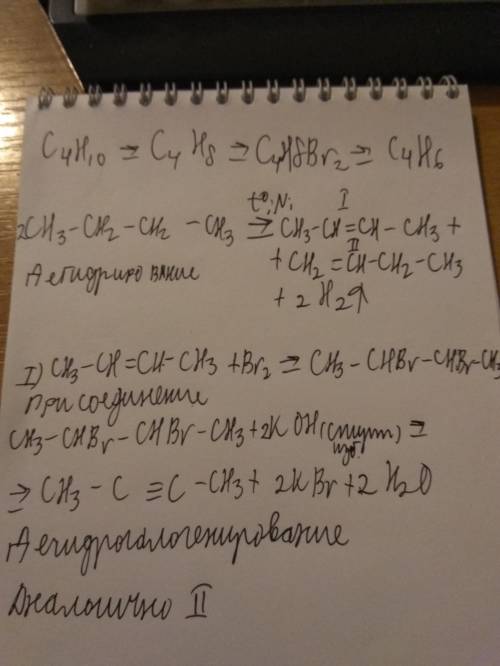 C₄H₁₀ → C₄H₈ → C₄H8Br₂ → C₄H₆
t°, Ni I
2CH₃-CH₂-CH₂-CH₃ → CH₃-CH=CH-CH₃ +
II
+ CH₂=CH-CH₂-CH₃
Дегидрирование
+ 2H₂↑
I) CH₃-CH=CH-CH₃ + Br₂ → CH₃-CHBr-CHBr-CH₃
присоединение
CH₃-CHBr-CHBr-CH₃ + 2KOH (спирт) →
изб.
→ CH₃-C≡C-CH₃ + 2KBr + 2H₂O
Дегидрогалогенирование
Аналогично II